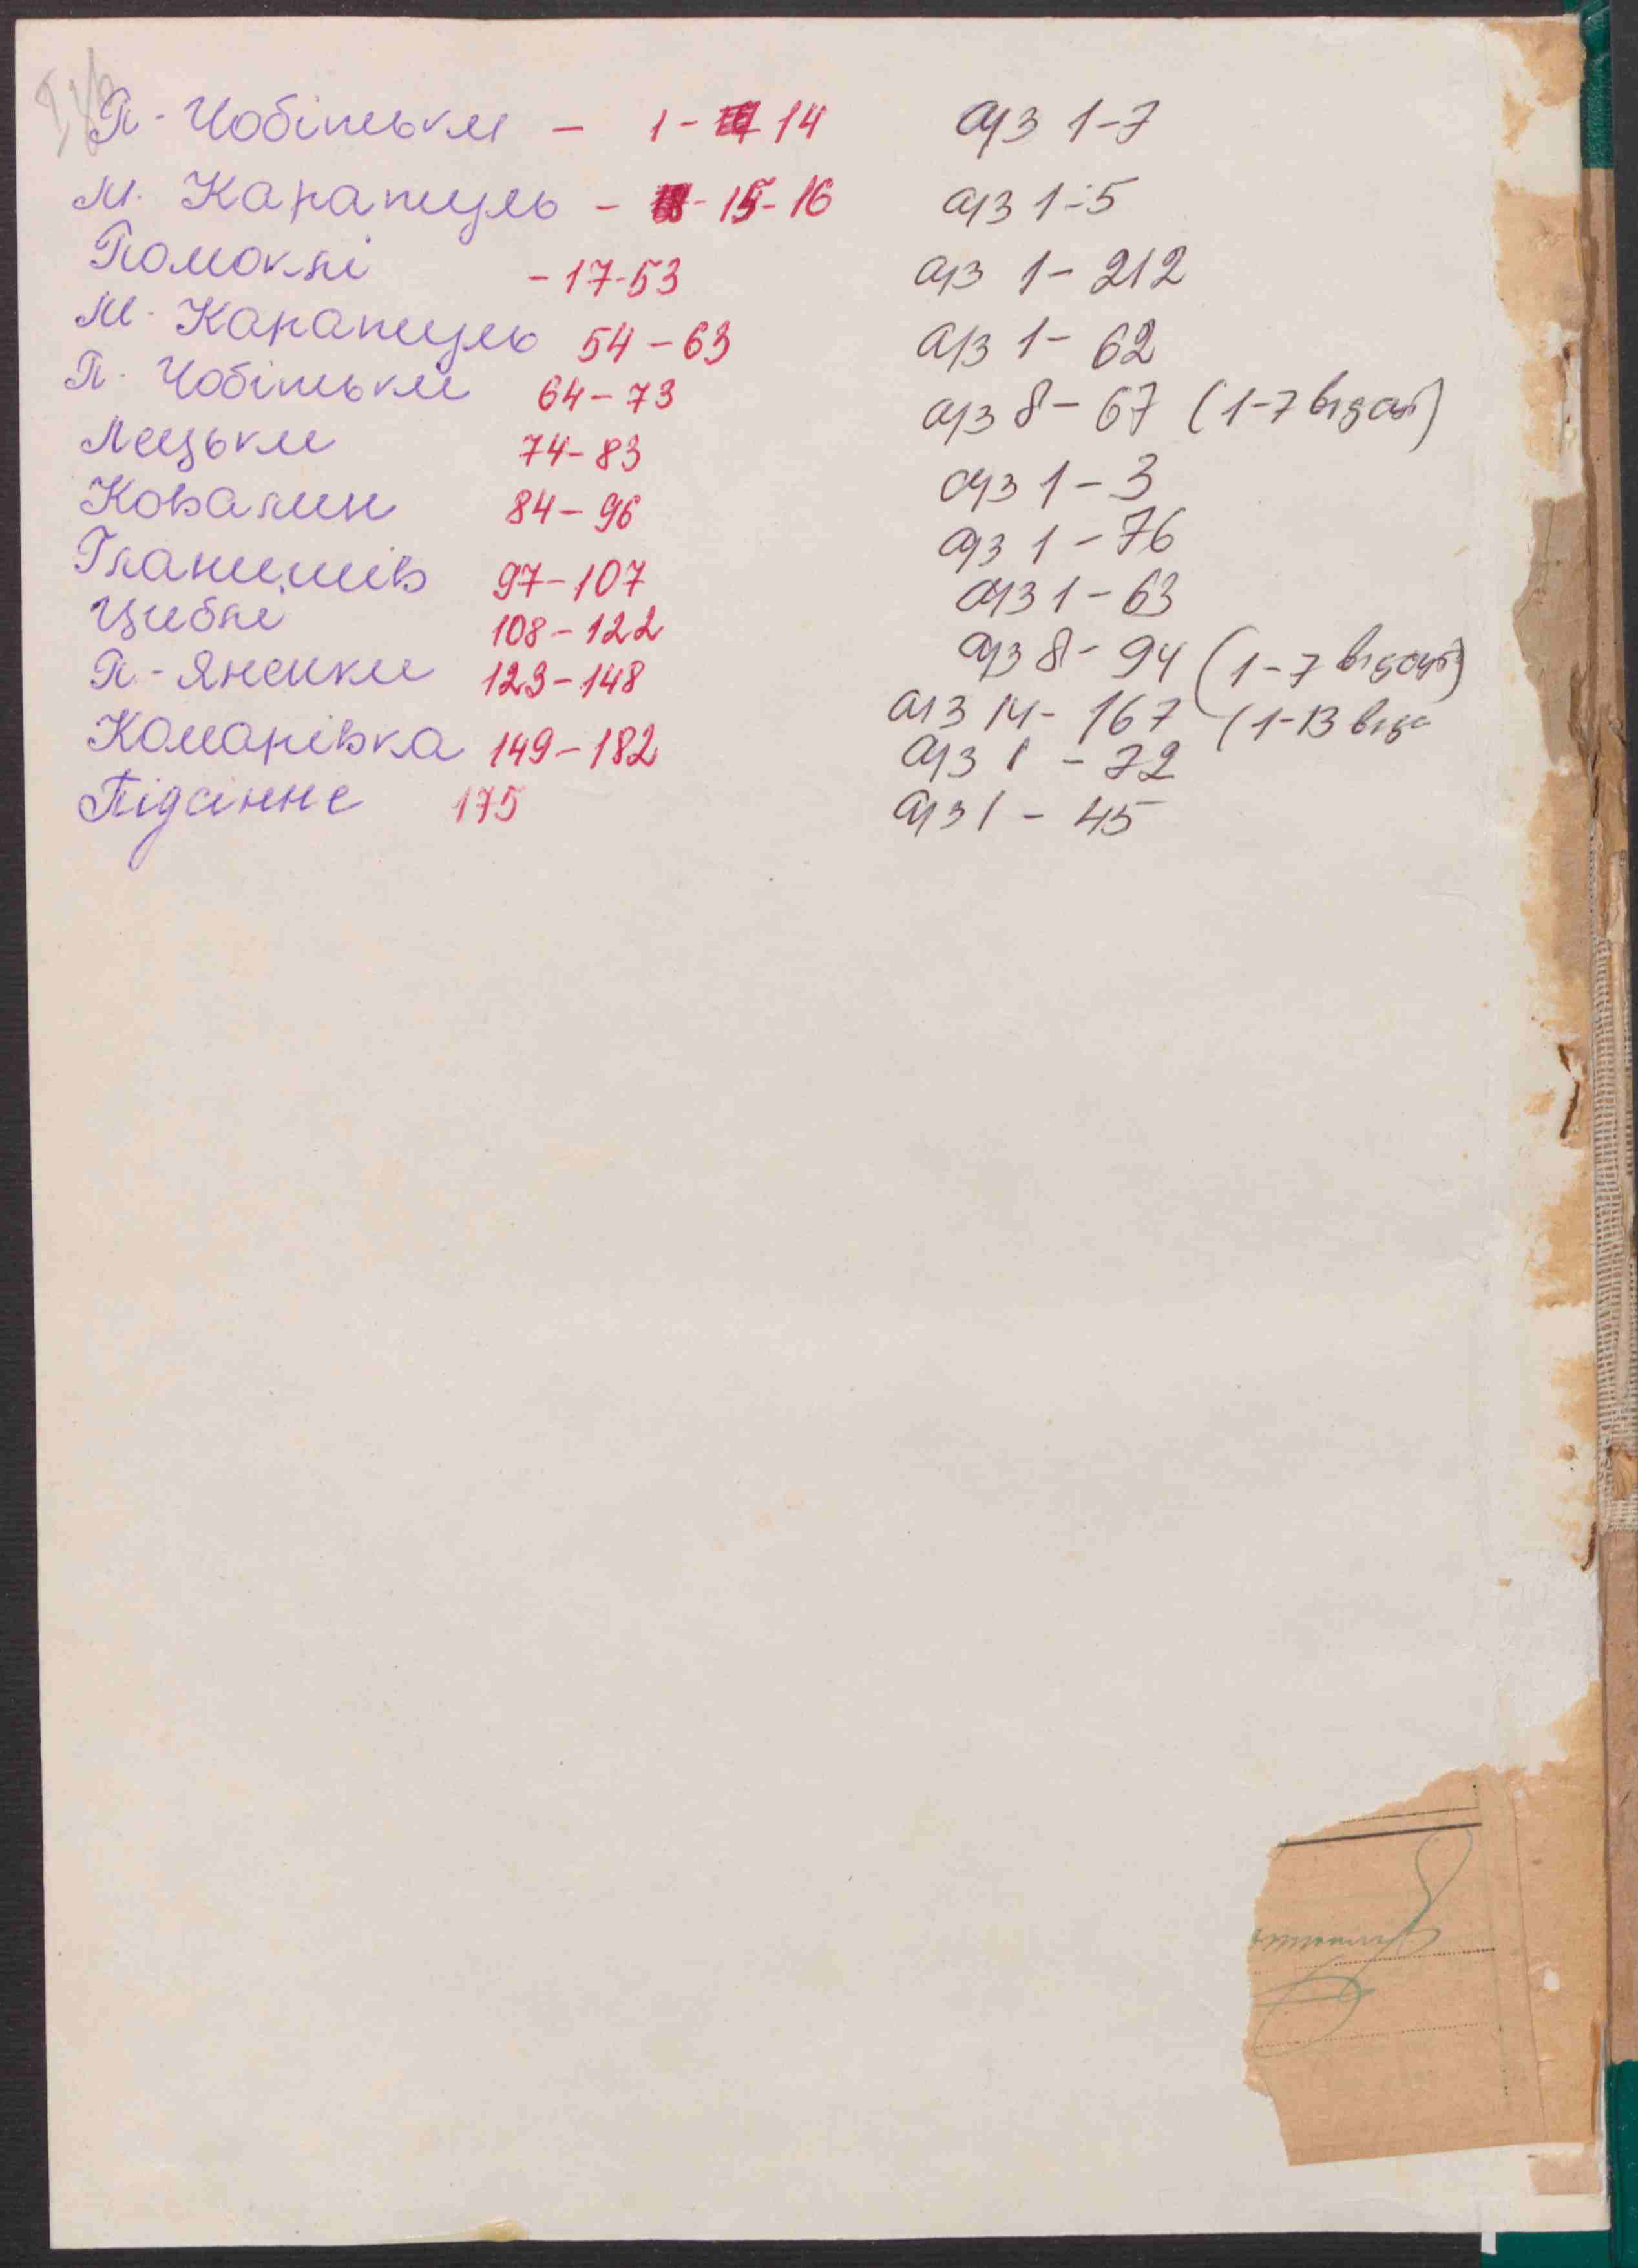 П-Чобітьки – 1-14 а/з 1-7
М. Каратуль – 15-16 а/з 1-5
Помоклі - 17-53 а/з 1-212
М. Каратуль 54-63 а/з 1-62
П. Чобітьки 64-73 а/з 8-67 (1-7 відсут)
Лецьки 74-83 а/з 1-3
Ковалин 84-96 а/з 1-76
Гланишів 97-107 а/з 1-63
Циблі 108-122 а/з 8-94 (1-7 відсут)
П-Яненки 123-148 а/з 14-167 (1-13 відс
Комарівка 149-182 а/з 1-72
Підсінне 175 а/з 1-45